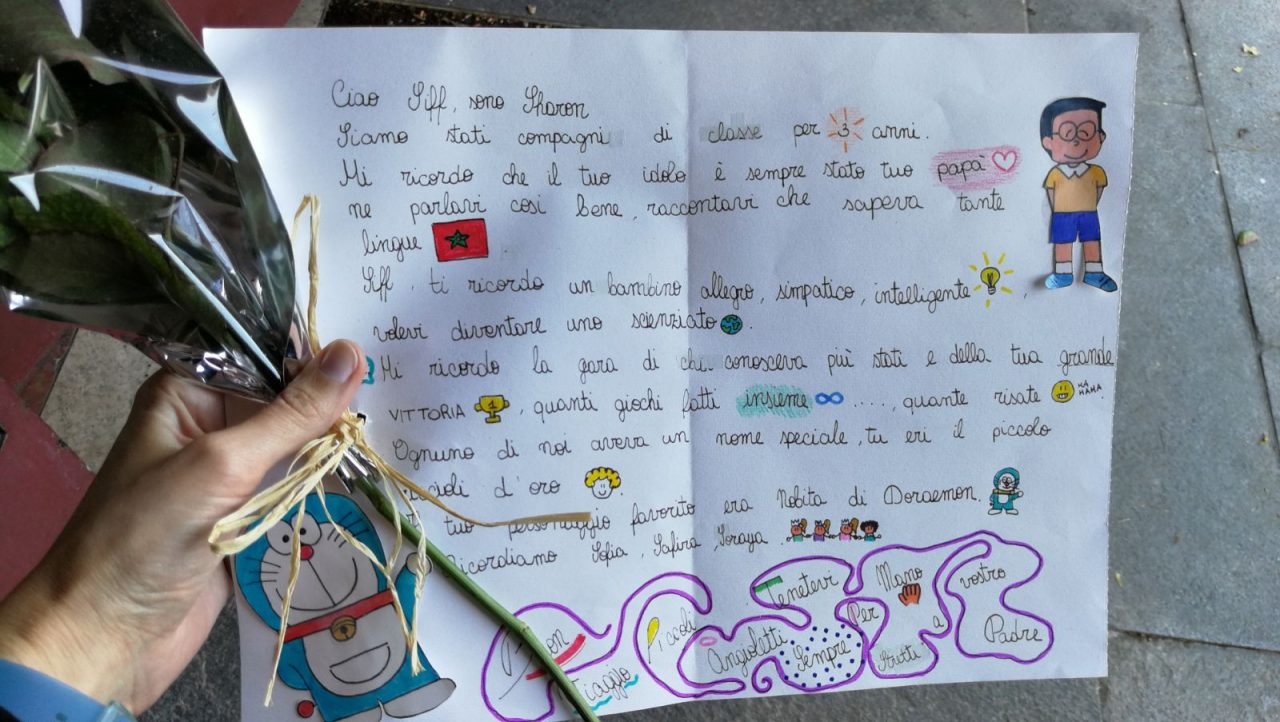 Ciao Siff, sono Sharon
Siamo stati compagni di classe per 3 anni.
Mi ricordo che il tuo idolo è sempre stato tuo papà
ne parlavi così bene, raccontavi che sapeva tante
lingue
Siff, ti ricordo un bambino allegro, simpatico, intelligente,
volevi diventare uno scienziato.
Mi ricordo la gara di chi conosceva più stati e della tua grande
VITTORIA 1, quanti giochi fatti insieme ...., quante risate HA HAHA.
Ognuno di noi aveva un nome speciale, tu eri il piccolo
d'oro.
tuo personaggio favorito era Nobita di Doraemon.
Ricordiamo Sofia, Safira, Soraya.
Buon
Viaggio
Piccoli
Angioletti
Tenetevi
Sempre
Per
Mano
a
Tutti
vostro
Padre